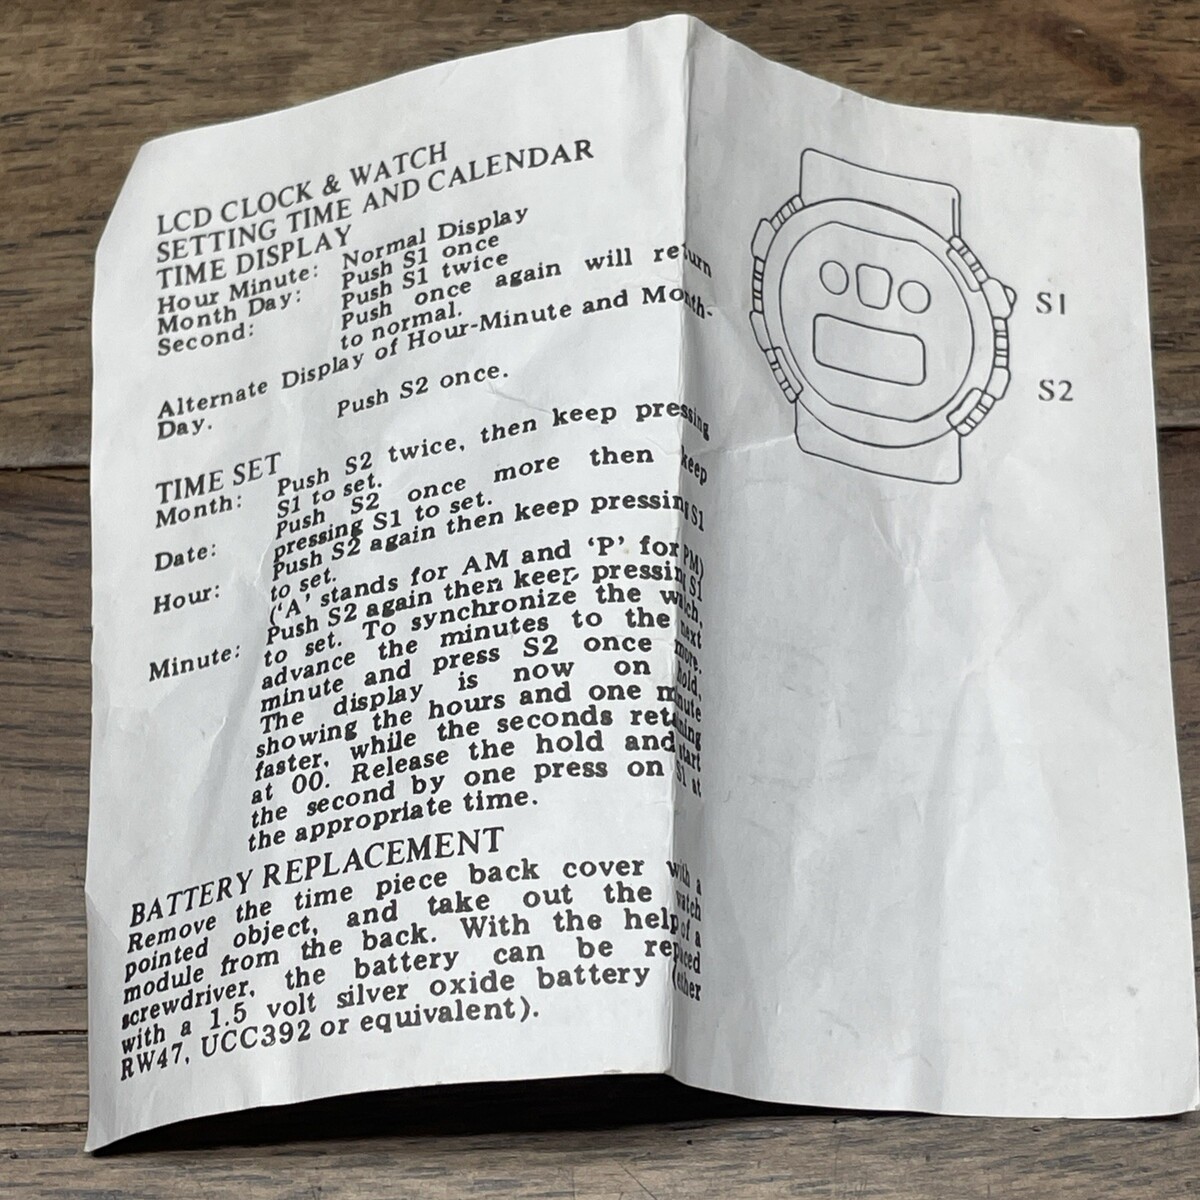 LCD CLOCK & WATCH
SETTING TIME AND CALENDAR
TIME DISPLAY
Hour Minute: Normal Display
Month Day: Push S1 once
Second: Push S1 twice
Push once again will return
to normal.
Alternate Display of Hour-Minute and Month-
Day.
Push S2 once.
TIME SET
Month: Push S2 twice, then keep pressing
S1 to set.
Date: Push S2 once more then keep
pressing S1 to set.
Hour: Push S2 again then keep pressing S1
to set.
('A' stands for AM and 'P' for PM)
Minute: Push S2 again then keep pressing S1
to set. To synchronize the watch,
advance the minutes to the next
minute and press S2 once more.
The display is now on hold,
showing the hours and one minute
faster, while the seconds retaining
at 00. Release the hold and start
the second by one press on S1 at
the appropriate time.
BATTERY REPLACEMENT
Remove the time piece back cover with a
pointed object, and take out the watch
module from the back. With the help of a
screwdriver, the battery can be replaced
with a 1.5 volt silver oxide battery (either
RW47, UCC392 or equivalent).
S1
S2